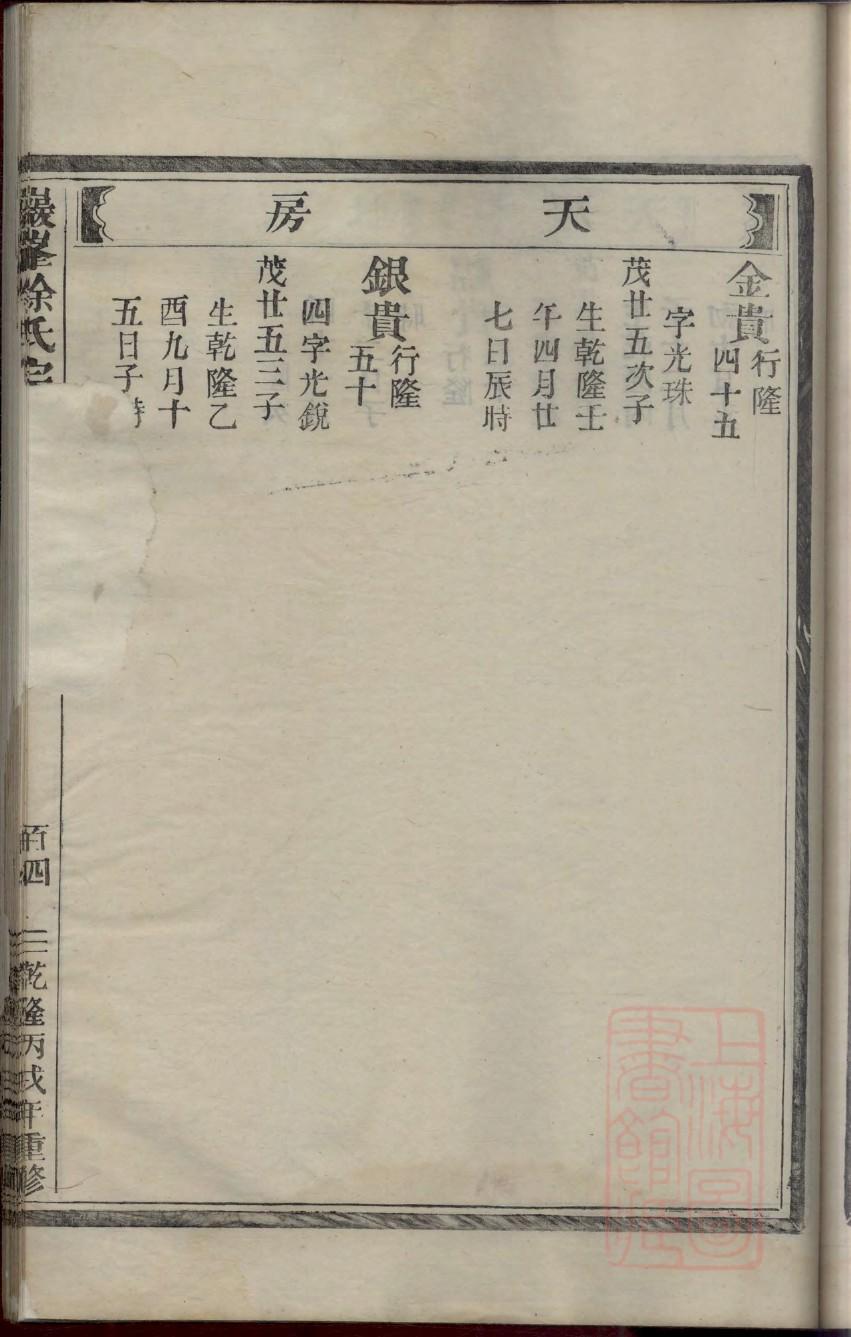 天房
金貴行隆
四十五
字光珠
茂廿五次子
生乾隆壬
午四月廿
七日辰時
銀貴行隆
五十
四字光銳
茂廿五三子
生乾隆乙
酉九月十
五日子時
巖峯徐氏宗
百四
三乾隆丙戌年重修
上海圖書館藏